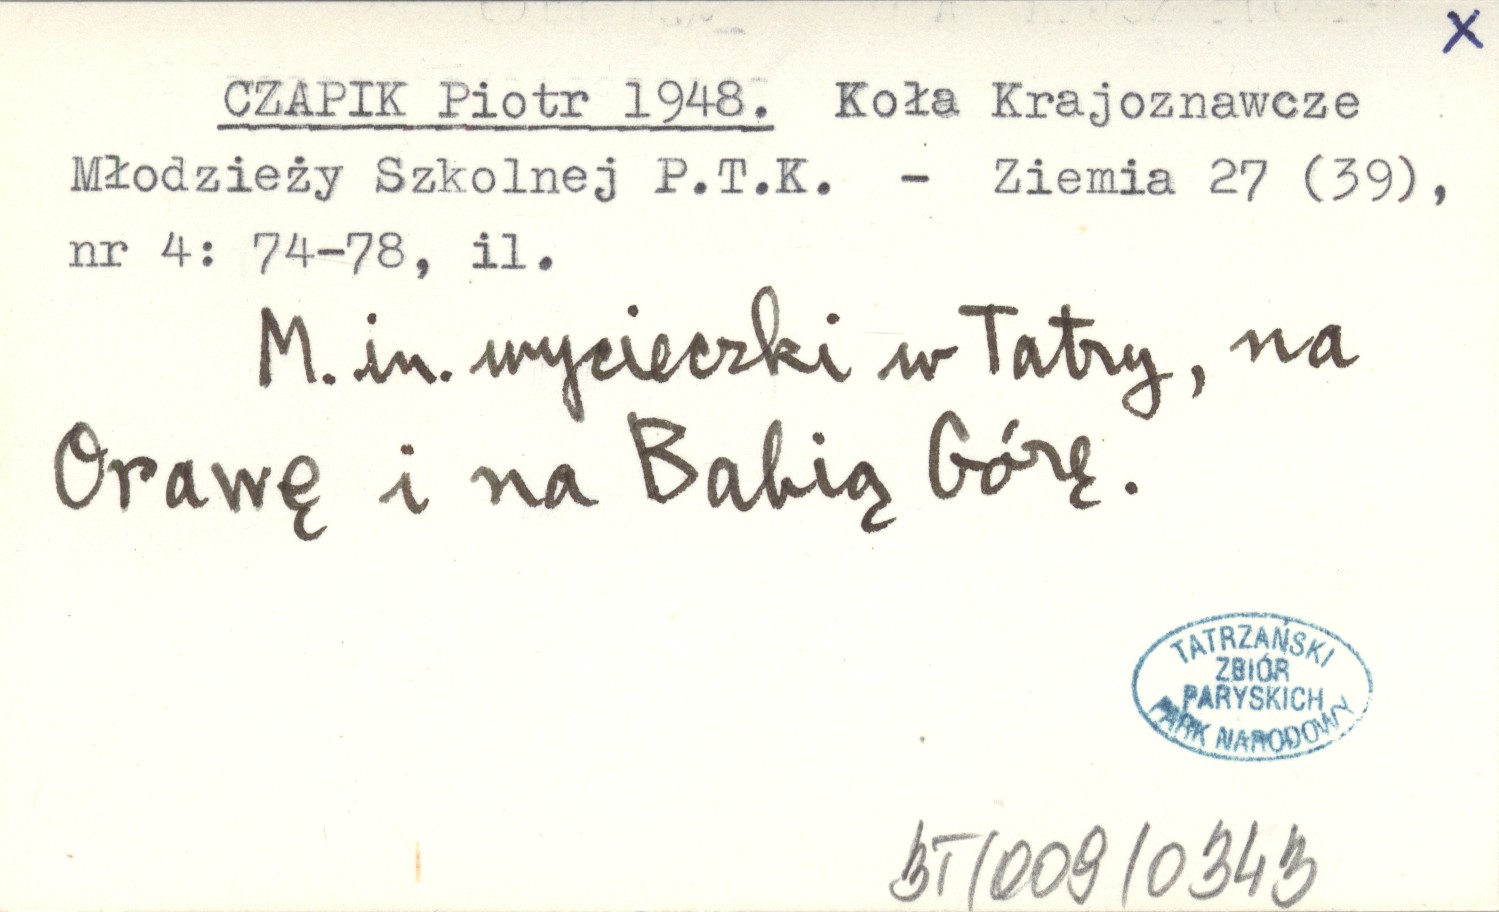 x
CZAPIK Piotr 1948. Koła Krajoznawcze
Młodzieży Szkolnej P.T.K. - Ziemia 27 (39),
nr 4: 74-78, il.
M. in. wycieczki w Tatry, na
Orawę i na Babią Górę.
TATRZAŃSKI
ZBIÓR
PARYSKICH
PARK NARODOWY
3T/009/0343